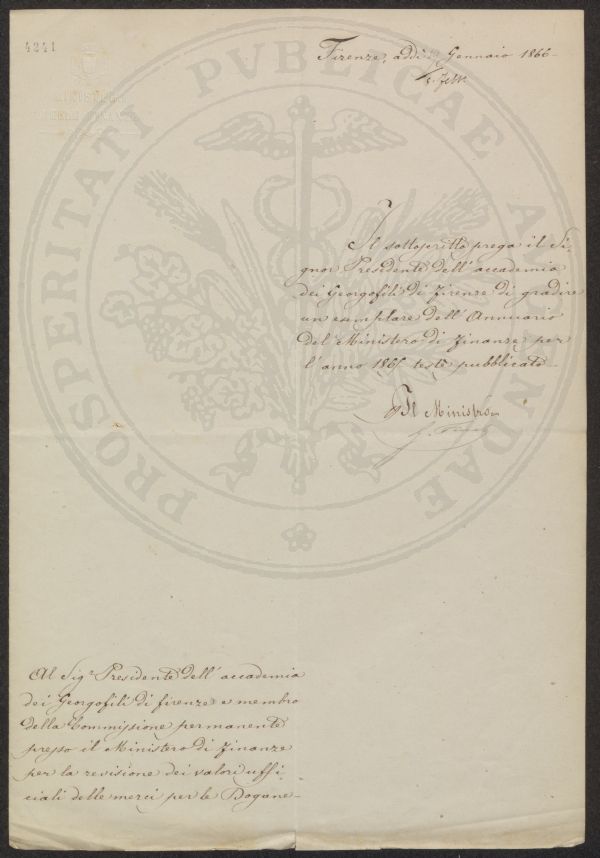 4241
MINISTERO
DELLE FINANZE
PROSPERITATI PVBLICAE AVGENDAE
Firenze, addì Gennaio 1866
Il sottoscritto prega il Si-
gnor Presidente dell'accademia
dei Georgofili di Firenze di gradire
un esemplare dell'Annuario
del Ministero di Finanze per
l'anno 1865 testè pubblicato
Il Ministro
Al Sigr Presidente dell'accademia
dei Georgofili di Firenze e membro
della Commissione permanente
presso il Ministero di Finanze
per la revisione dei valori uffi-
ciali delle merci per le Dogane